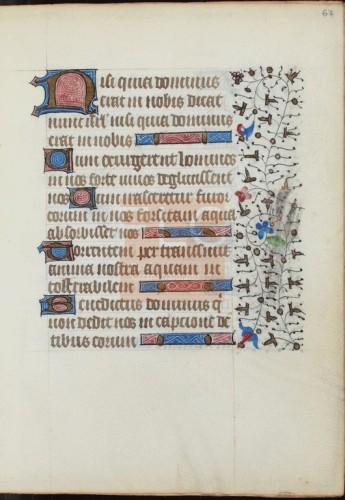 67
Nisi quia dominus
erat in nobis dicat
nunc isrl nisi quia dominus
erat in nobis
Cum exurgerent homines
in nos forte vivos deglutissent
nos Cum irasceretur furor
eorum in nos forsitam aqua
absorbisset nos
Torrentem per transivit
anima nostra aquam in
tollerabilem
Benedictus dominus qi
non dedit nos in capcione de
tibus eorum